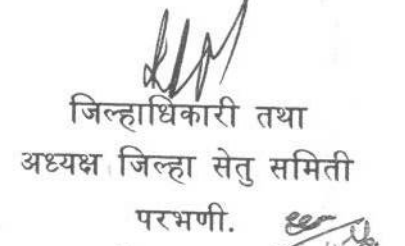 जिल्हाधिकारी तथा
अध्यक्ष जिल्हा सेतु समिती
परभणी.